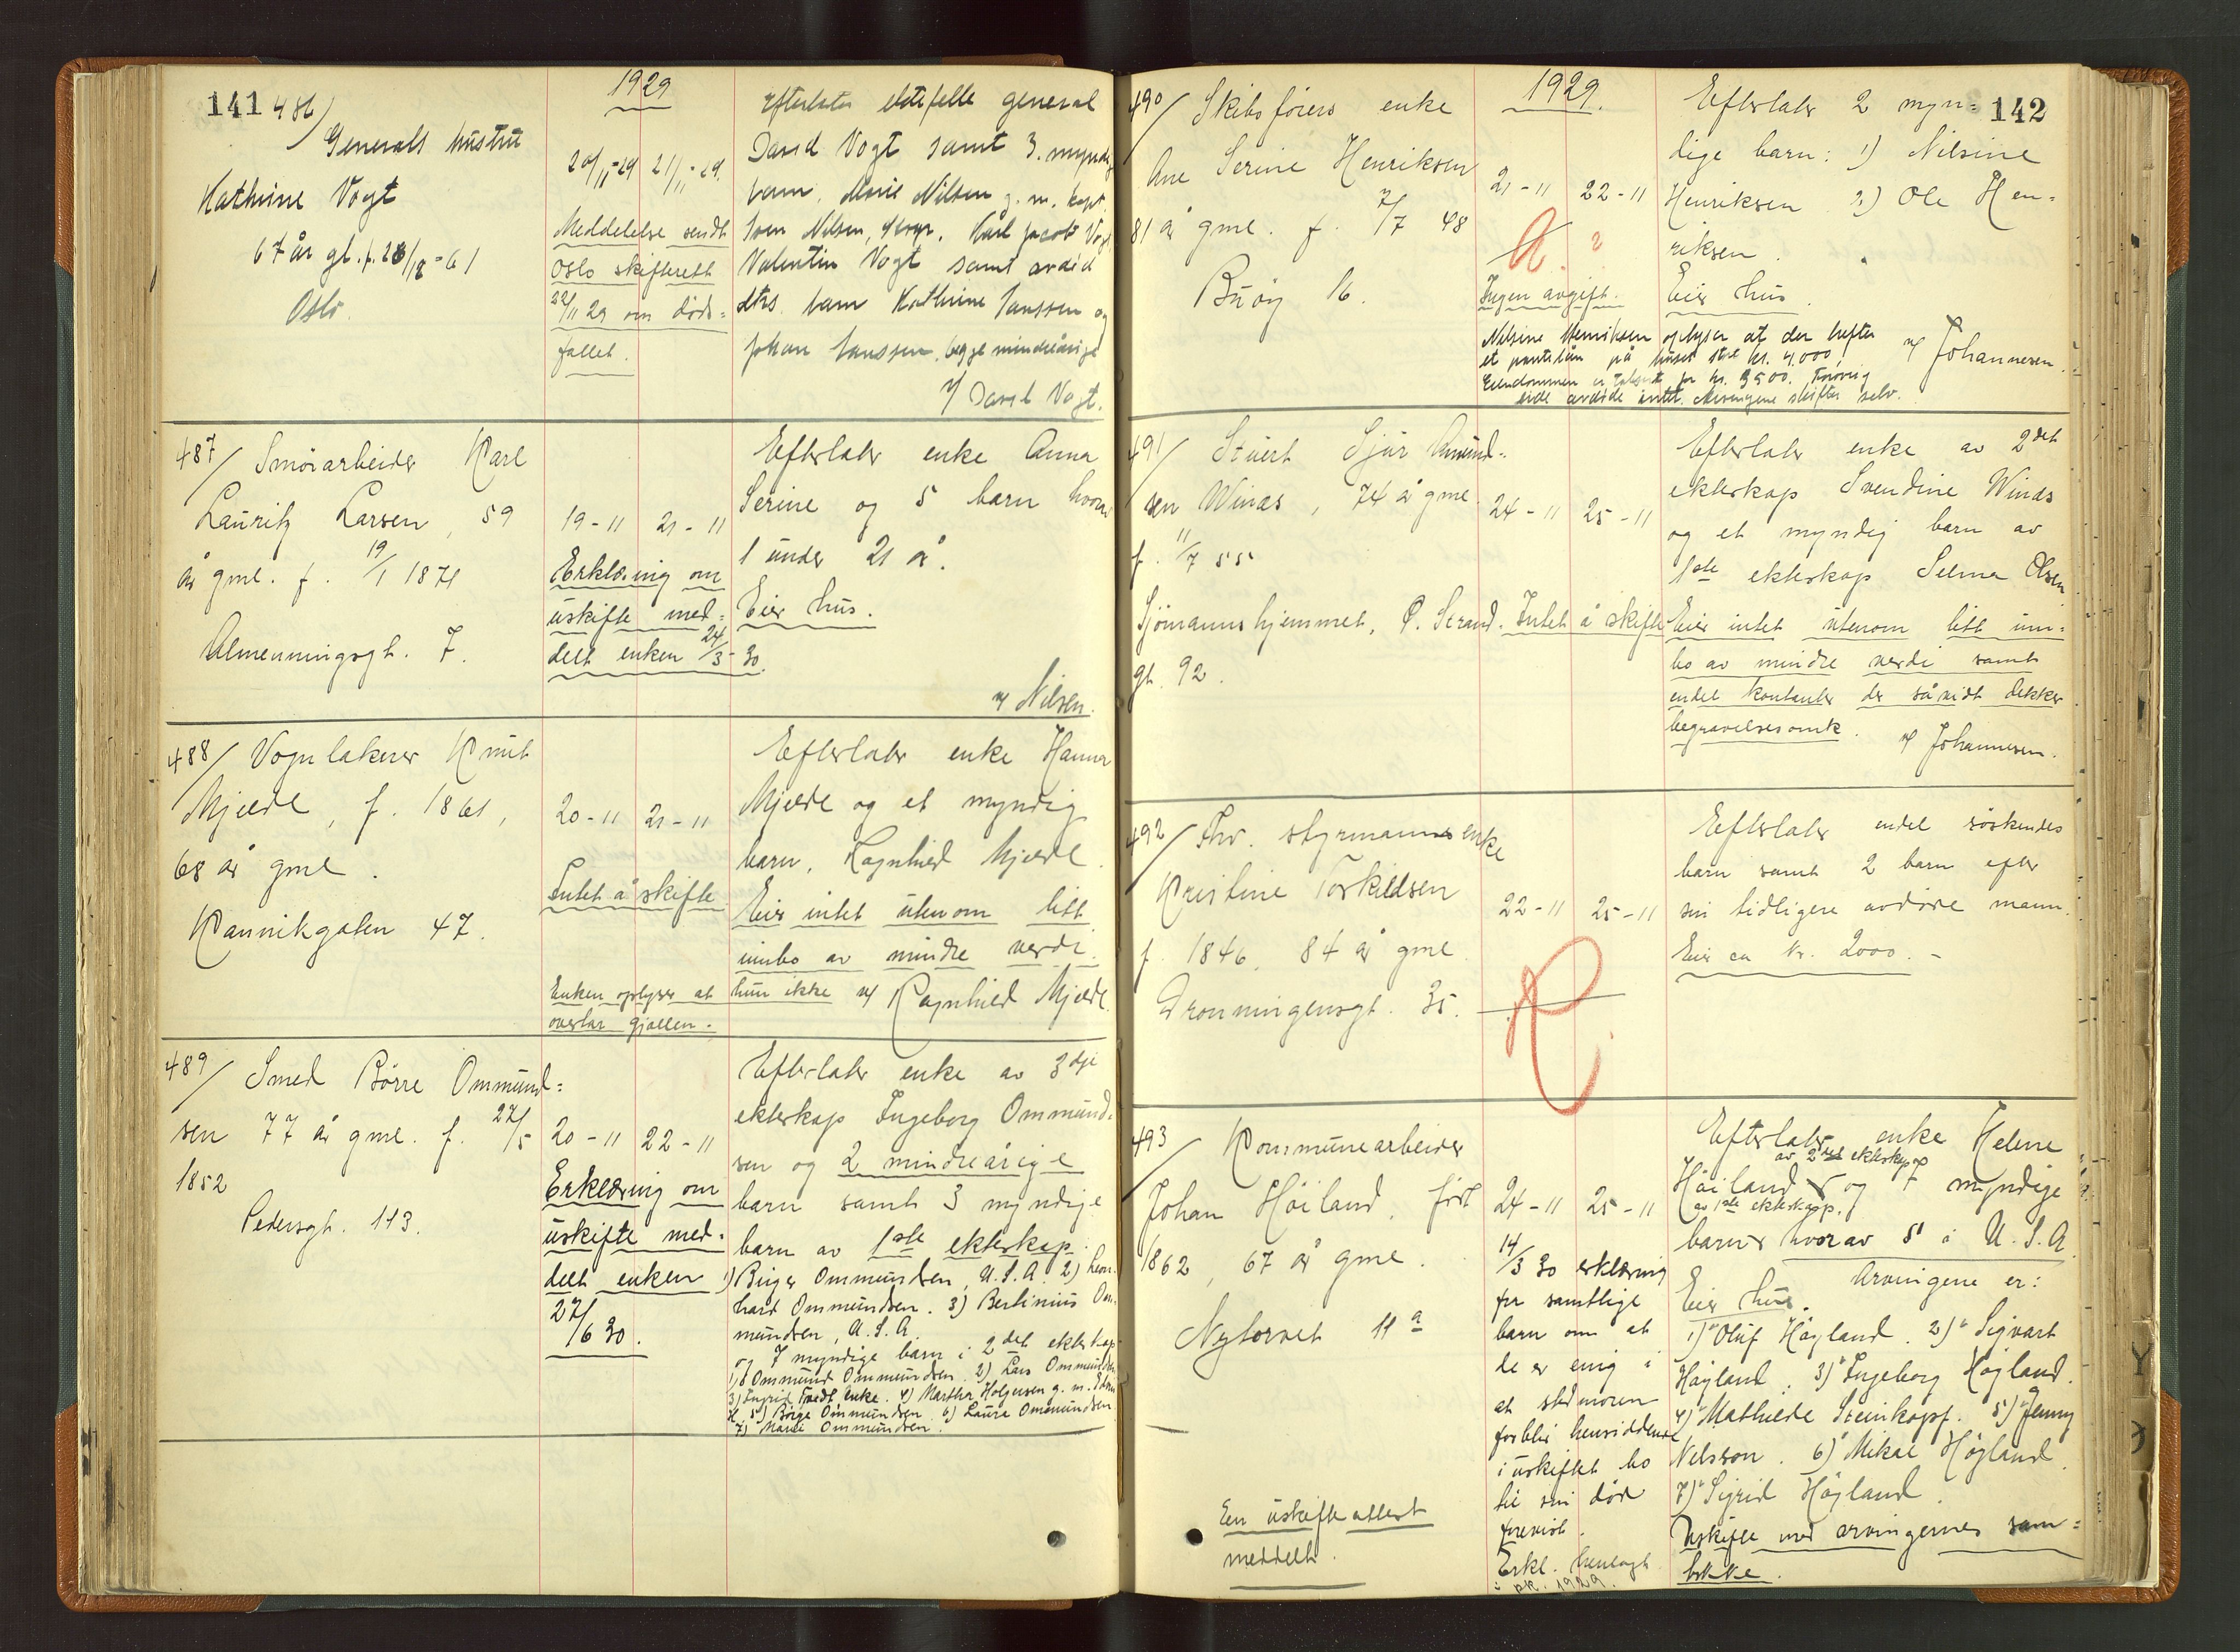 141
486/
Generals hustru
Kathrine Vogt
67 år gl. f. 28/12-61
Oslo.
1929
20/11-29 21/11-29.
Meddelelse sendt
Oslo skifterett
22/11 29 om døds=
fallet.
Efterlater ektefelle general
David Vogt samt 3. myndig
barn. Marie Nilsen g. m. kapt.
Karl Jacob Vogt
Valentin Vogt samt avdød
dtrs. barn Kathrine Janssen og
Johan Janssen, begge mindreårige
v/ David Vogt.
487/ Smörarbeider Karl
Lauritz Larsen, 59
år gml. f. 19/1 1871
Almenningsgt. 7.
19-11 21-11
Erklæring om
uskifte med=
delt enken 24/3-30.
Efterlater enke Anna
Serine og 5 barn hvorav
1 under 21 år.
Eier hus.
v/ Nilsen.
488/ Vognlakerer Knut
Mjelde, f. 1861,
68 år gml.
Kannikgaten 47.
20-11 21-11
Intet å skifte
Enken oplyser at hun ikke
overtar gjælden.
Efterlater enke Hanna
Mjelde og et myndig
barn, Ragnhild Mjelde.
Eier intet utenom litt
innbo av mindre verdi.
v/ Ragnhild Mjelde.
489/ Smed Börre Ommund=
sen 77 år gml. f. 27/5
1852
Pedersgt. 113.
20-11 22-11
Erklæring om
uskifte med=
delt enken
27/6 30.
Efterlater enke av 3dje
ekteskap Ingeborg Ommund=
sen og 2 mindreårige
barn samt 3 myndige
barn av 1ste ekteskap.
1) Birger Ommundsen, U.S.A. 2) Leon=
hard Ommundsen. 3) Bertinius Om=
mundsen, U.S.A.
og 7 myndige barn i 2det ekteskap
1) Ommund Ommundsen. 2) Lars Ommundsen
3) Ingrid Tvedt, enke. 4) Marthe Holgersen g. m.
5) Börge Ommundsen 6) Laura Ommundsen
7) Marie Ommundsen.
142
490/ Skibsförers enke
Ane Serine Henriksen
81 år gml. f. 7/7 48
Buöy 16.
1929.
21-11 22-11
Ingen avgift.
Efterlater 2 myn=
dige barn: 1) Nilsine
Henriksen 2) Ole Hen=
riksen.
Eier hus.
Nilsine Henriksen oplyser at der hefter
et pantelån på huset stort kr. 4000,
Eiendommen er taksert for kr. 3500. Forövrig
eide avdöde intet. Arvingene skifter selv.
v/ Johannesen.
491/ Stuert Sjur Amund=
sen Winas, 74 år gml.
f. 11/7 55
Sjömannshjemmet, Ö. Strand=
gt. 92.
24-11 25-11
Intet å skifte
Efterlater enke av 2det
ekteskap Svendine Winas
og et myndig barn av
1ste ekteskap Selma Olsen
Eier intet utenom litt inn=
bo av mindre verdi samt
endel kontanter der såvidt dekker
begravelsesomk.
v/ Johannesen.
492/ Fhv. styrmanns enke
Kristine Torkildsen
f. 1846, 84 år gml.
Dronningensgt. 35.
22-11 25-11
Efterlater endel söskendes
barn samt 2 barn efter
sin tidligere avdöde mann.
Eier ca kr. 2000.-
493/ Kommunearbeider
Johan Höiland, född
1862, 67 år gml.
Nytorvet 11 a
En uskifteattest
meddelt.
24-11 25-11
14/3 30 erklæring
fra samtlige
barn om at
de er enig i
at stedmoren
forblir hensiddende
i uskiftet bo
til sin död
Erkl. henlagt
i pk. 1929.
Efterlater enke Helene
av 2det ekteskap
Höiland og 7 myndige
av 1ste ekteskap.
barn hvorav 5 i U.S.A.
Eier hus.
Arvingene er:
1) Oluf Höyland. 2) Sigvart
Höyland. 3) Ingeborg Höyland.
4) Mathilde Steinkopf. 5) Jenny
Nelsson. 6) Mikal Höyland.
7) Sigrid Höyland.
Uskifte med arvingernes sam=
tykke.